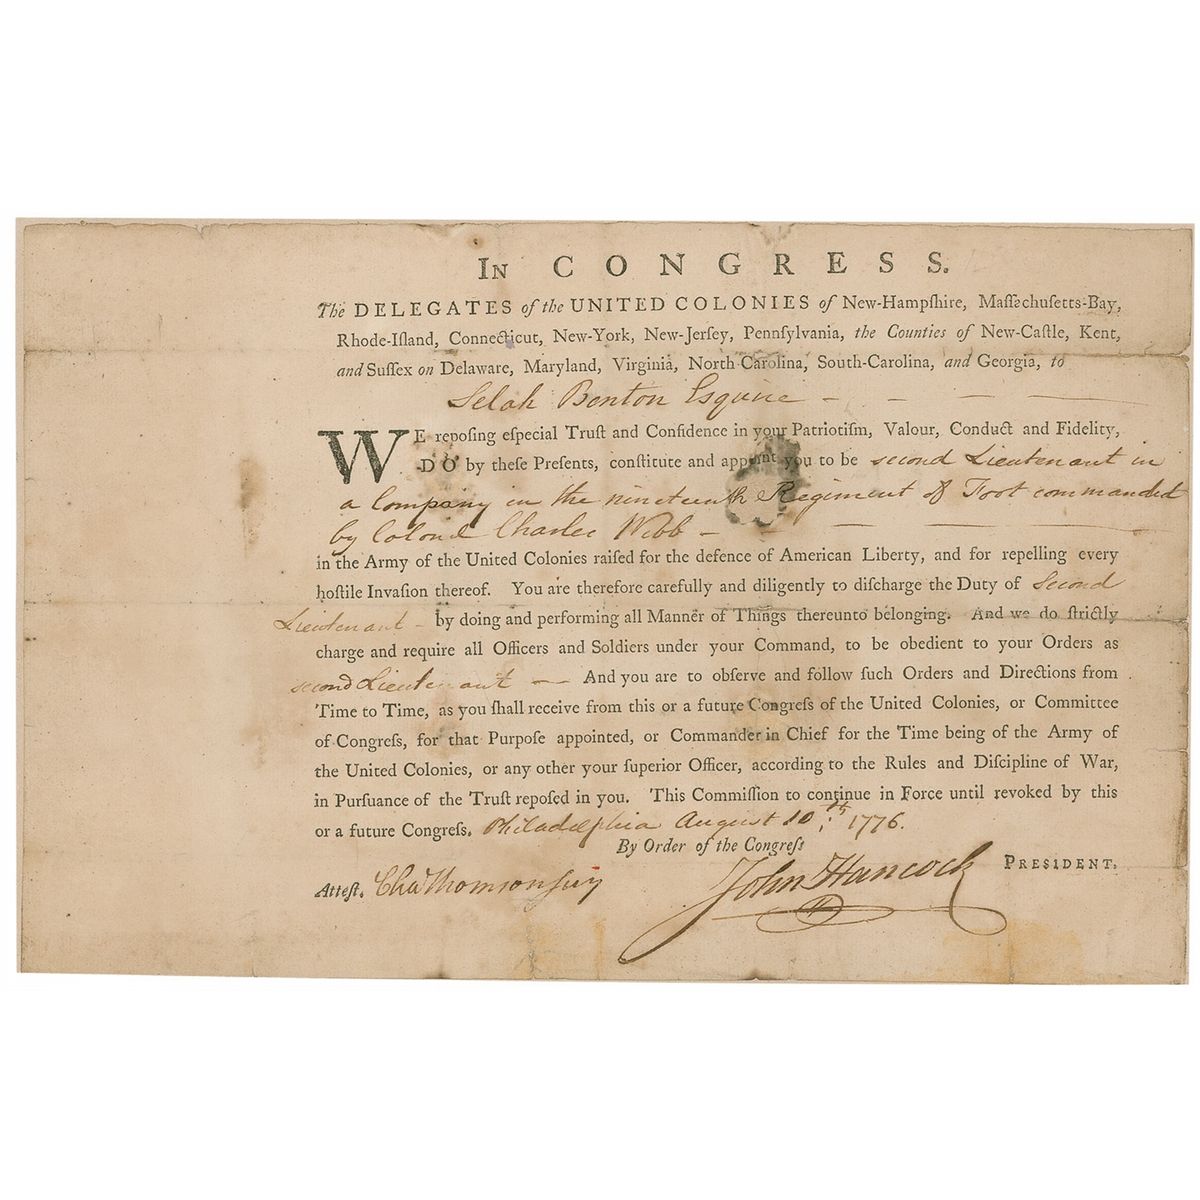 In CONGRESS.
The DELEGATES of the UNITED COLONIES of New-Hampſhire, Maſſechuſetts-Bay,
Rhode-Iſland, Connecticut, New-York, New-Jerſey, Pennſylvania, the Counties of New-Caſtle, Kent,
and Suſſex on Delaware, Maryland, Virginia, North-Carolina, South-Carolina, and Georgia, to
Selah Benton Esquire - - - -
WE repoſing eſpecial Truſt and Confidence in your Patriotiſm, Valour, Conduct and Fidelity,
DO by theſe Preſents, conſtitute and appoint you to be second Lieutenant in
a Company in the nineteenth Regiment of Foot commanded
by Colonel Charles Webb - - - -
in the Army of the United Colonies raiſed for the defence of American Liberty, and for repelling every
hoſtile Invaſion thereof. You are therefore carefully and diligently to diſcharge the Duty of Second
Lieutenant - by doing and performing all Manner of Things thereunto belonging. And we do ſtrictly
charge and require all Officers and Soldiers under your Command, to be obedient to your Orders as
second Lieutenant - - And you are to obſerve and follow ſuch Orders and Directions from
Time to Time, as you ſhall receive from this or a future Congreſs of the United Colonies, or Committee
of Congreſs, for that Purpoſe appointed, or Commander in Chief for the Time being of the Army of
the United Colonies, or any other your ſuperior Officer, according to the Rules and Diſcipline of War,
in Purſuance of the Truſt repoſed in you. This Commiſſion to continue in Force until revoked by this
or a future Congreſs. Philadelphia August 10th, 1776.
By Order of the Congreſs
John Hancock PRESIDENT.
Atteſt. Chas Thomson secy